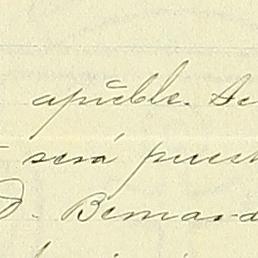 apúble. Se
será puest
D. Bernard